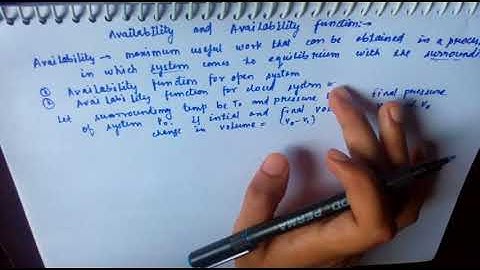 Availability and Availability function:→
Availability → maximum useful work that can be obtained in a process
in which system comes to equilibrium with the surroundi
① Availability function for open system
② Availability function for closed system =
Let surrounding temp be T₀ and pressure final pressure
of system P₀. if intial and final vol V₀
change in volume = (V₀-V₁)
PERMA